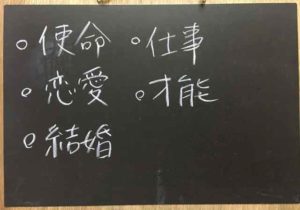 ○使命 ○仕事
○恋愛 ○才能
○結婚